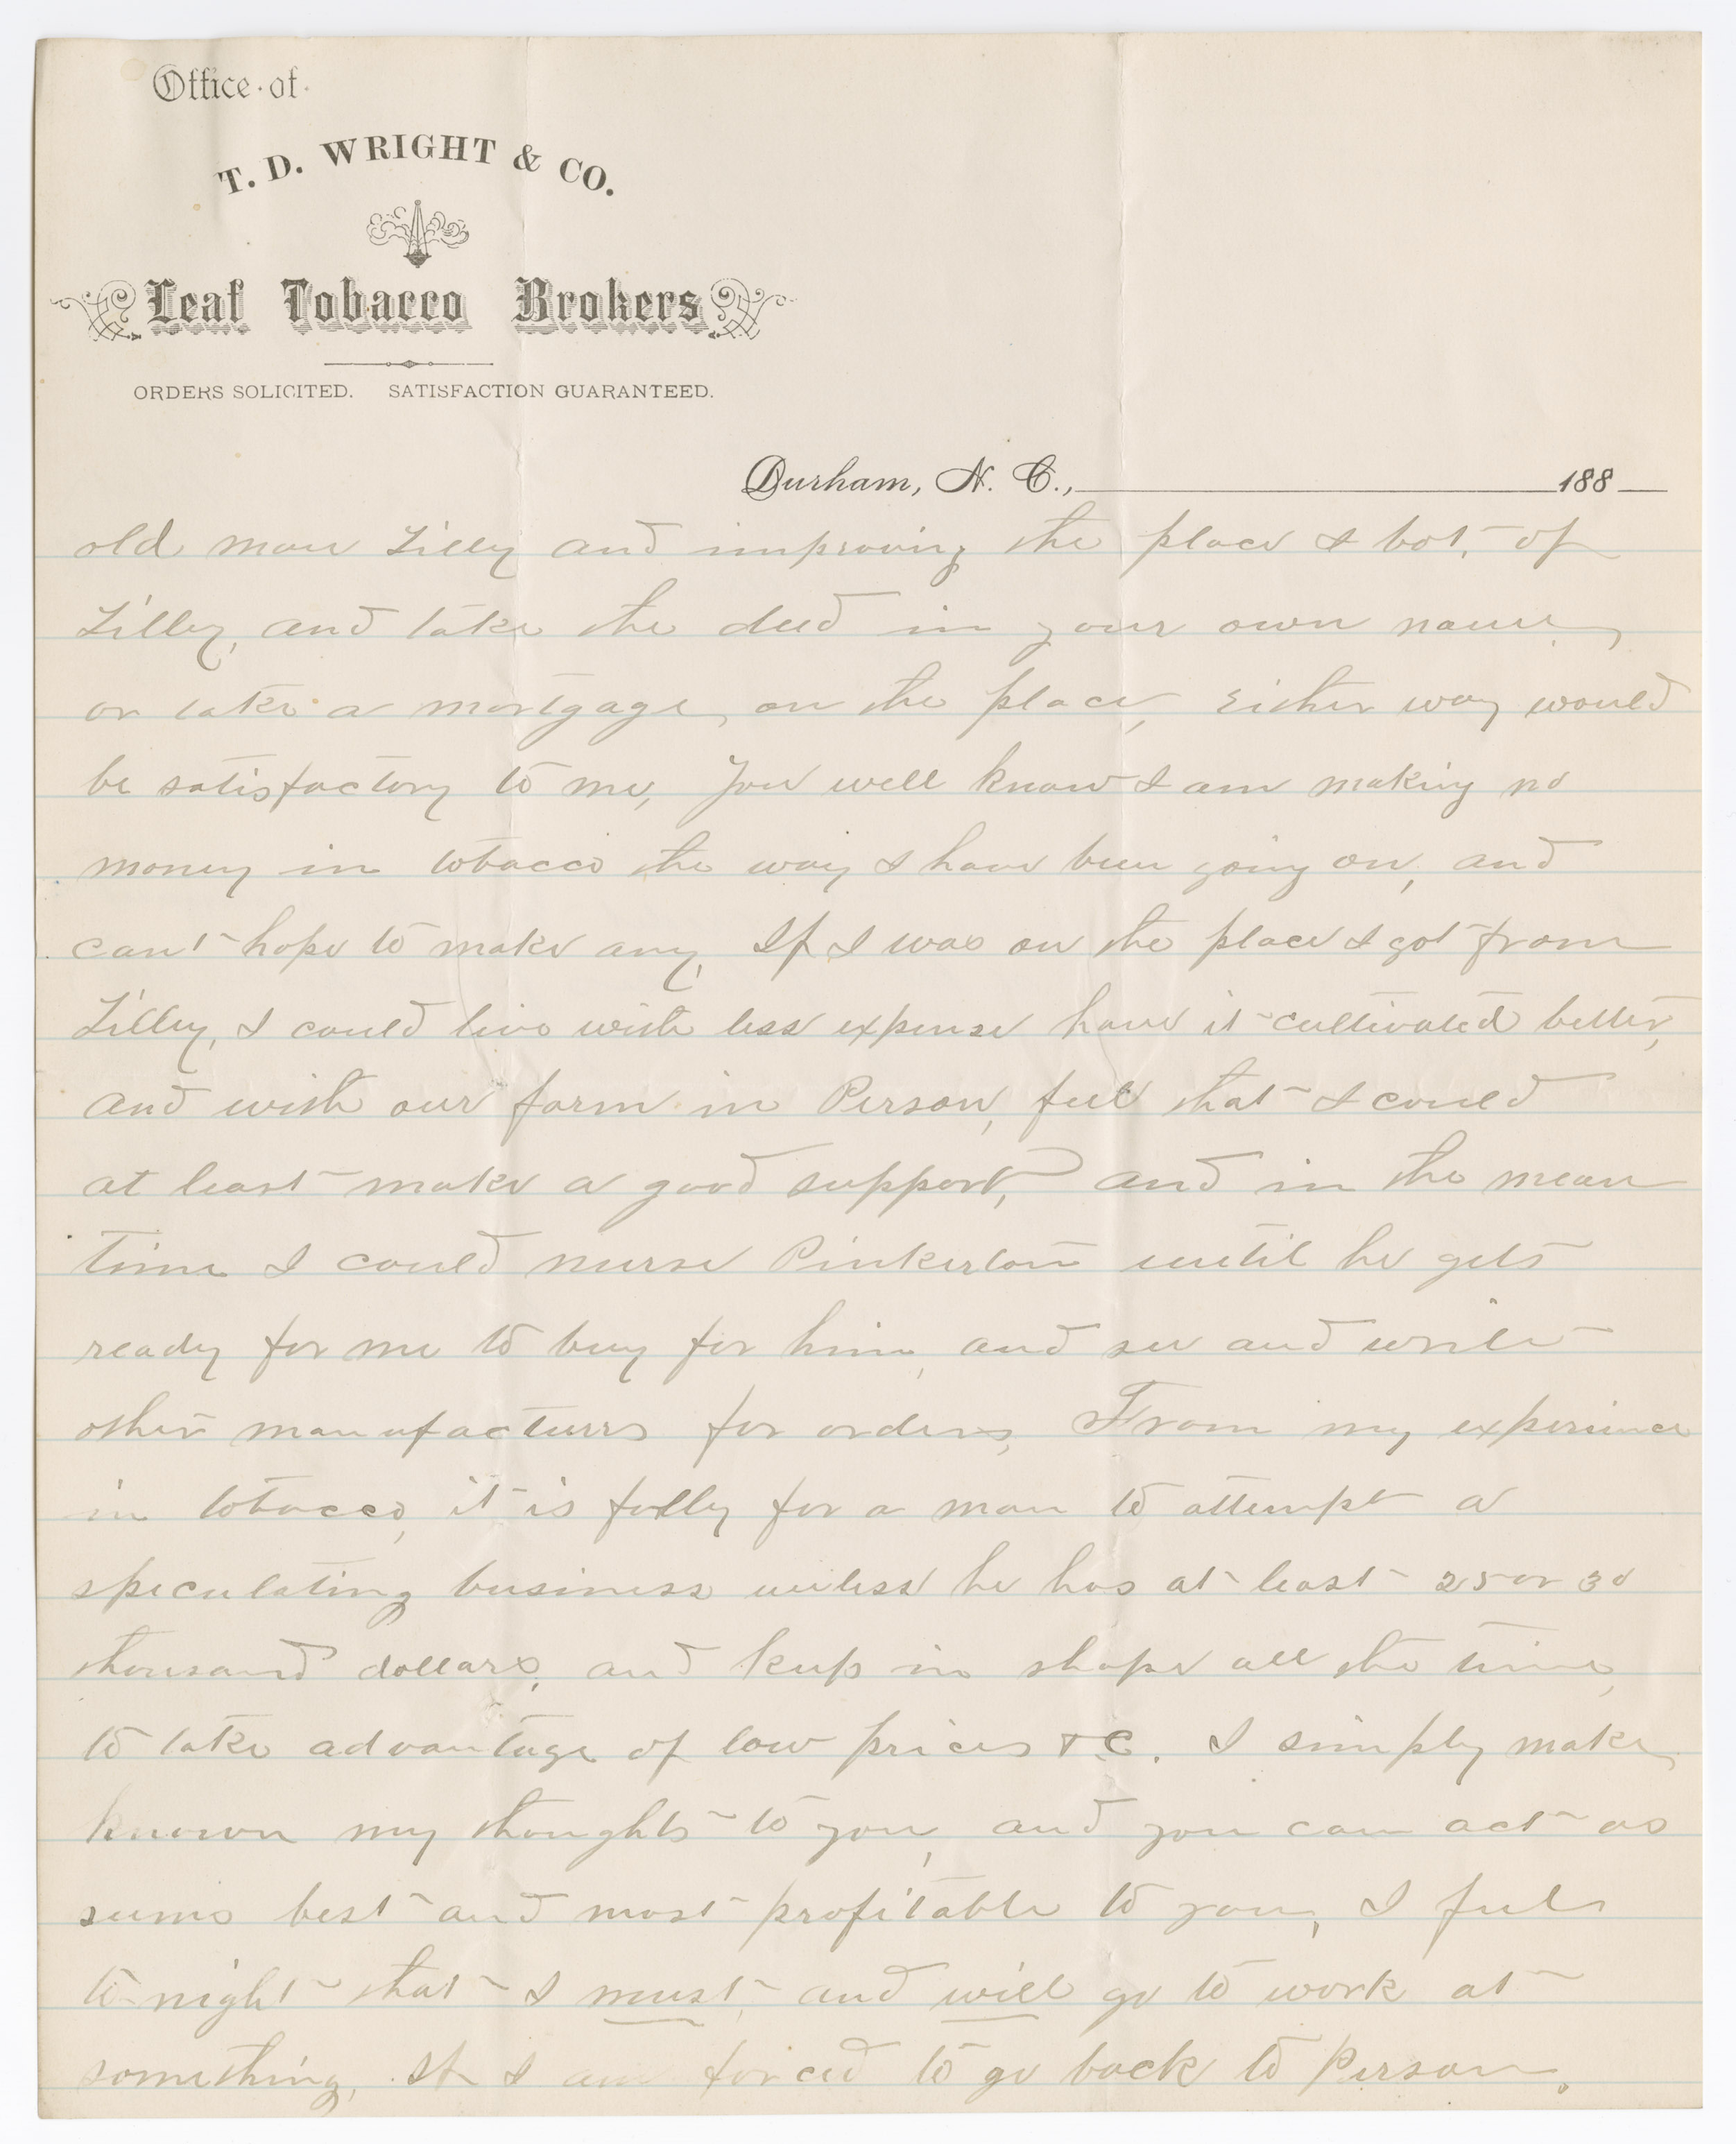 Office of
T. D. WRIGHT & CO.
Leaf Tobacco Brokers
ORDERS SOLICITED. SATISFACTION GUARANTEED.
Durham, N. C., 188
old man Lilly and improving the place I bot. of
Lilley, and take the deed in your own name,
or take a mortgage, on the place, Either way would
be satisfactory to me, You well know I am making no
money in tobacco the way I have been going on, and
can't hope to make any, If I was on the place I got from
Lilley, I could live with less expense have it cultivated better,
and with our farm in Person, feel that I could
at least make a good support, and in the mean
time I could nurse Pinkerton until he gets
ready for me to buy for him, and see and write
other manufacturs for orders, From my experience
in tobacco, it is folly for a man to attempt a
speculating business unless he has at least 25 or 30
thousand dollars, and keep in shape all the time,
to take advantage of low prices &C. I simply make
known my thoughts to you, and you can act as
seems best and most profitable to you, I feel
to-night that I must, and will go to work at
something, If I am forced to go back to Person.